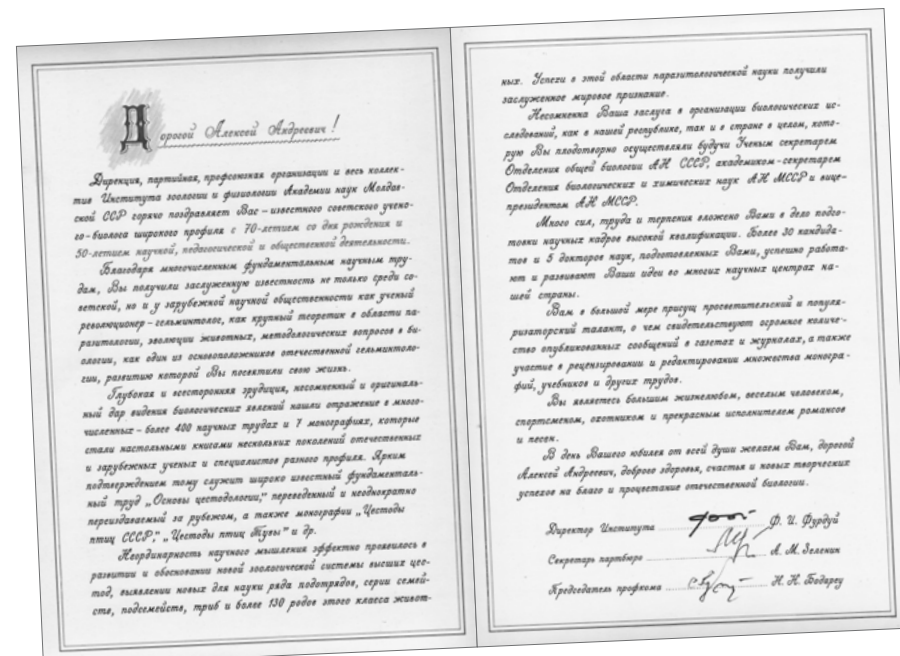 Дорогой Алексей Андреевич!
Дирекция, партийная, профсоюзная организации и весь коллек-
тив Института зоологии и физиологии Академии наук Молдав-
ской ССР горячо поздравляет Вас – известного советского учено-
го-биолога широкого профиля с 70-летием со дня рождения и
50-летием научной, педагогической и общественной деятельности.
Благодаря многочисленным фундаментальным научным тру-
дам, Вы получили заслуженную известность не только среди со-
ветской, но и у зарубежной научной общественности как ученый
революционер – гельминтолог, как крупный теоретик в области па-
разитологии, эволюции животных, методологических вопросов в би-
ологии, как один из основоположников отечественной гельминтоло-
гии, развитию которой Вы посвятили свою жизнь.
Глубокая и всесторонняя эрудиция, несомненный и оригиналь-
ный дар видения биологических явлений нашли отражение в много-
численных – более 400 научных трудах и 7 монографиях, которые
стали настольными книгами нескольких поколений отечественных
и зарубежных ученых и специалистов разного профиля. Ярким
подтверждением тому служит широко известный фундаменталь-
ный труд „Основы цестодологии,” переведенный и неоднократно
переиздаваемый за рубежом, а также монографии „Цестоды
птиц СССР,” „Цестоды птиц Тувы” и др.
Неординарность научного мышления эффектно проявилось в
развитии и обосновании новой зоологической системы высших цес-
тод, выявлении новых для науки ряда подотрядов, серии семей-
ств, подсемейств, триб и более 130 родов этого класса живот-
ных. Успехи в этой области паразитологической науки получили
заслуженное мировое признание.
Несомненна Ваша заслуга в организации биологических ис-
следований, как в нашей республике, так и в стране в целом, кото-
рую Вы плодотворно осуществляли будучи Ученым секретарем
Отделения общей биологии АН СССР, академиком-секретарем
Отделения биологических и химических наук АН МССР и вице-
президентом АН МССР.
Много сил, труда и терпения вложено Вами в дело подго-
товки научных кадров высокой квалификации. Более 30 кандида-
тов и 5 докторов наук, подготовленных Вами, успешно работа-
ют и развивают Ваши идеи во многих научных центрах на-
шей страны.
Вам в большой мере присущ просветительский и популя-
ризаторский талант, о чем свидетельствуют огромное количе-
ство опубликованных сообщений в газетах и журналах, а также
участие в рецензировании и редактировании множества моногра-
фий, учебников и других трудов.
Вы являетесь большим жизнелюбом, веселым человеком,
спортсменом, охотником и прекрасным исполнителем романсов
и песен.
В день Вашего юбилея от всей души желаем Вам, дорогой
Алексей Андреевич, доброго здоровья, счастья и новых творческих
успехов на благо и процветание отечественной биологии.
Директор Института Ф. И. Фурдуй
Секретарь партбюро А. М. Зеленин
Председатель профкома Н. Н. Бодареу